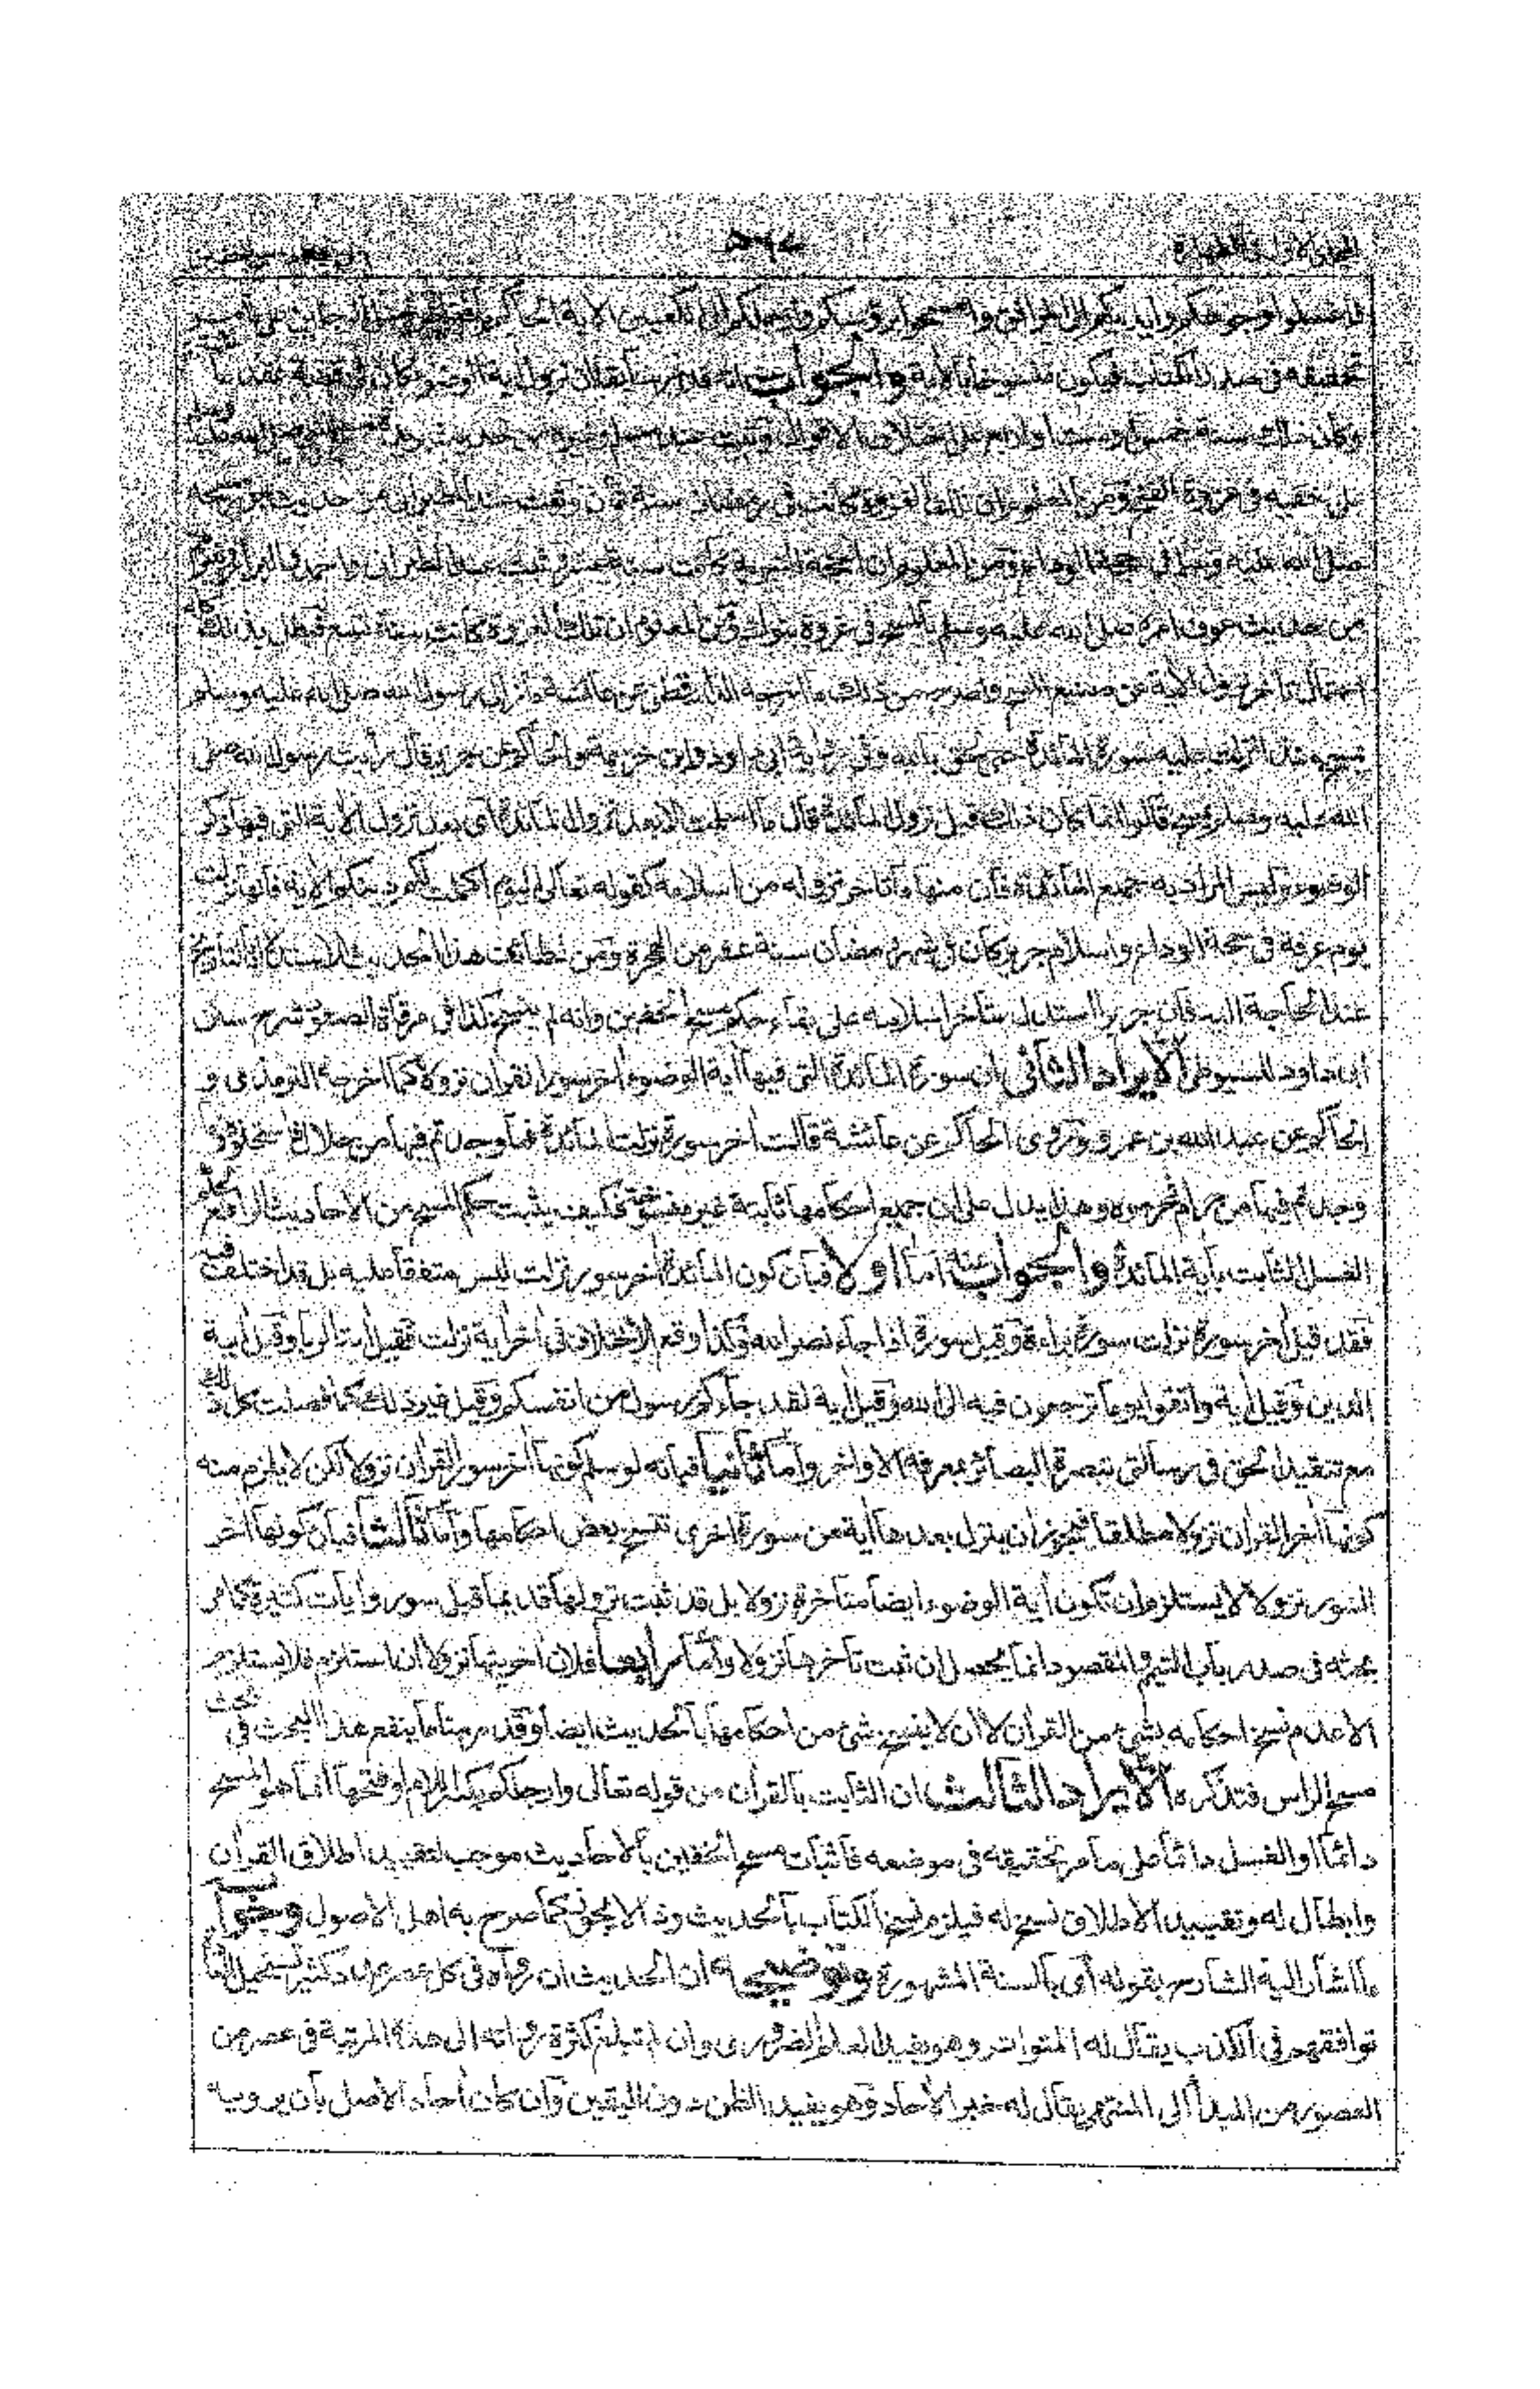 فاغسلوا وجوهكم وايديكم الى المرافق وامسحوا برؤسكم وارجلكم الى الكعبين الآية
تحقيقه فى صدر الكتاب فيكون منسوخا بالآية والجواب انه قد مر سابقا ان نزول آية الوضوء كان فى قصة
وكان ذلك سنة خمس او ست او اربع على اختلاف الاقوال وثبت عند
على خفيه فى غزوة الفتح ومن المعلوم ان تلك الغزوة كانت فى رمضان سنة ثمان وثبت عند الطبرانى من حديث جرير
صلى الله عليه وسلم فى حجة الوداع ومن المعلوم ان الحجة النبوية كانت سنة عشر وثبت عند الطبرانى واحمد والبزار
من حديث عوف امره صلى الله عليه وسلم بالمسح فى غزوة تبوك ومن المعلوم ان تلك الغزوة كانت سنة تسع فبطل بذلك كله
احتمال تاخر نزول الآية عن واصرح من ذلك ما اخرجه الدارقطنى عن عائشة ما زال رسول الله صلى الله عليه وسلم
يمسح منذ انزلت عليه سورة المائدة حتى لحق بالله وفى رواية ابى داود وابن خزيمة والحاكم عن جرير قال رأيت رسول الله صلى
الله عليه وسلم يمسح قالوا انما كان ذلك قبل نزول المائدة قال ما اسلمت الا بعد نزول المائدة اى بعد نزول الآية التى فيها ذكر
الوضوء وليس المراد به جميع المائدة فان منها ما تاخر نزوله من اسلامه كقوله تعالى اليوم اكملت لكم دينكم الآية فانها نزلت
يوم عرفة فى حجة الوداع واسلام جرير كان فى شهر رمضان سنة عشر من الهجرة ومن لطائف هذا الحديث الاستدلال بالتاريخ
عند الحاجة اليه فان جرير استدل بتأخر اسلامه على بقاء حكم مسح الخفين وانه لم ينسخ كذا فى مرقاة الصعود شرح سنن
ابى داود للسيوطى الايراد الثانى ان سورة المائدة التى فيها آية الوضوء اخر سور القرآن نزولا كما اخرجه الترمذى و
الحاكم عن عبد الله بن عمرو وروى الحاكم عن عائشة قالت اخر سورة نزلت المائدة فما وجدتم فيها من حلال فاستحلوه وما
وجدتم فيها من حرام فحرموه وهذا يدل على ان جميع احكامها ثابتة غير منسوخة فكيف يثبت حكم المسح من الاحاديث الرافع لحكم
الغسل الثابت بآية المائدة والجواب عنه اما اولا فبان كون المائدة اخر سور نزلت ليس متفقا عليه بل قد اختلف فيه
فقد قيل اخر سورة نزلت سورة براءة وقيل سورة اذا جاء نصر الله وكذا وقع الاختلاف فى اخر آية نزلت فقيل آية الربا وقيل آية
الدين وقيل آية واتقوا يوما ترجعون فيه الى الله وقيل آية لقد جاءكم رسول من انفسكم وقيل غير ذلك كما فصلت كل ذلك
مع تنقيد الحق فى رسالتى تبصرة البصائر بمعرفة الاواخر واما ثانيا فبانه لو سلم كونها اخر سور القرآن نزولا لكن لا يلزم منه
كونها اخر القرآن نزولا مطلقا فيجوز ان ينزل بعدها آية من سورة اخرى تنسخ بعض احكامها واما ثالثا فبان كونها اخر
السور نزولا لا يستلزم ان تكون آية الوضوء ايضا متأخرة نزولا بل قد ثبت نزولها قديما قبل سور وآيات كثيرة كما مر
بحثه فى صدر باب التيمم والمقصود انما يحصل ان ثبت تأخرها نزولا واما رابعا فلان اخريتها نزولا ان استلزم فلا يستلزم
الا عدم نسخ احكامه بشئ من القرآن لا ان لا ينسخ شئ من احكامها بالحديث ايضا وقد مر منا ما ينفع هذا البحث فى بحث
مسح الراس فتذكره الايراد الثالث ان الثابت بالقرآن من قوله تعالى وارجلكم بكسر اللام او فتحها انما هو المسح
دائما او الغسل دائما على ما مر تحقيقه فى موضعه فاثبات مسح الخفين بالاحاديث موجب لتقييد اطلاق القرآن
وابطال له وتقييد الاطلاق نسخ له فيلزم نسخ الكتاب بالحديث وذا لا يجوز كما صرح به اهل الاصول وجوابه
ما اشار اليه الشارح بقوله اى بالسنة المشهورة وتوضيحه ان الحديث ان رواه فى كل عصر عدد كثير يستحيل
توافقهم فى الكذب يقال له المتواتر وهو يفيد العلم الضرورى وان لم تبلغ كثرة رواته الى هذه المرتبة فى عصر من
العصور من المبدأ الى المنتهى يقال له خبر الآحاد وهو يفيد الظن دون اليقين وان كان آحاد الاصل بأن يرويه